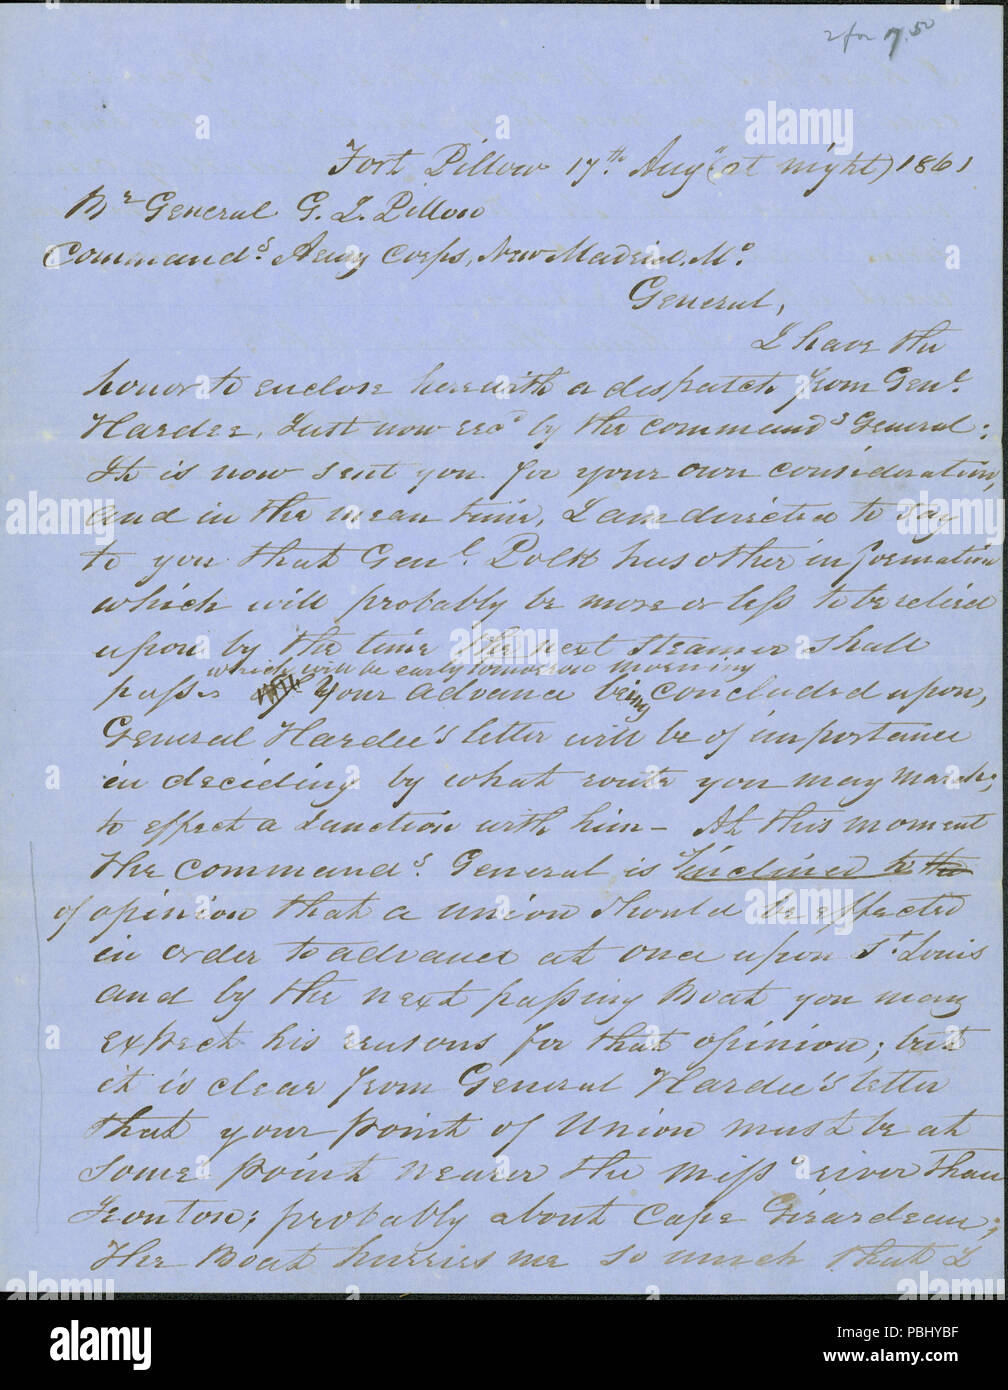 2 for 7.50
Fort Pillow 17th Augt (at night) 1861
Br General G. J. Pillow
Commandg Army Corps, New Madrid, Mo.
General,
I have the
honor to enclose herewith a dispatch from Genl
Hardee, Just now recd by the commandg General:
It is now sent you for your own consideration,
and in the mean time, I am directed to say
to you that Genl. Polk has other information
which will probably be more or less to be relied
upon by the time the next steamer shall
which will be early tomorrow morning
pass. Your advance being concluded upon,
General Hardee's letter will be of importance
in deciding by what route you may march,
to effect a Junction with him - At this moment
the commandg General is inclined to the
of opinion that a union should be effected
in order to advance at once upon St Louis
and by the next passing Boat you may
expect his reasons for that opinion; but
it is clear from General Hardee's letter
that your point of Union must be at
some point nearer the Missi river than
Ironton; probably about Cape Girardeau;
The Boat hurries me so much that I
alamy
Image ID: PBHYBF
www.alamy.com